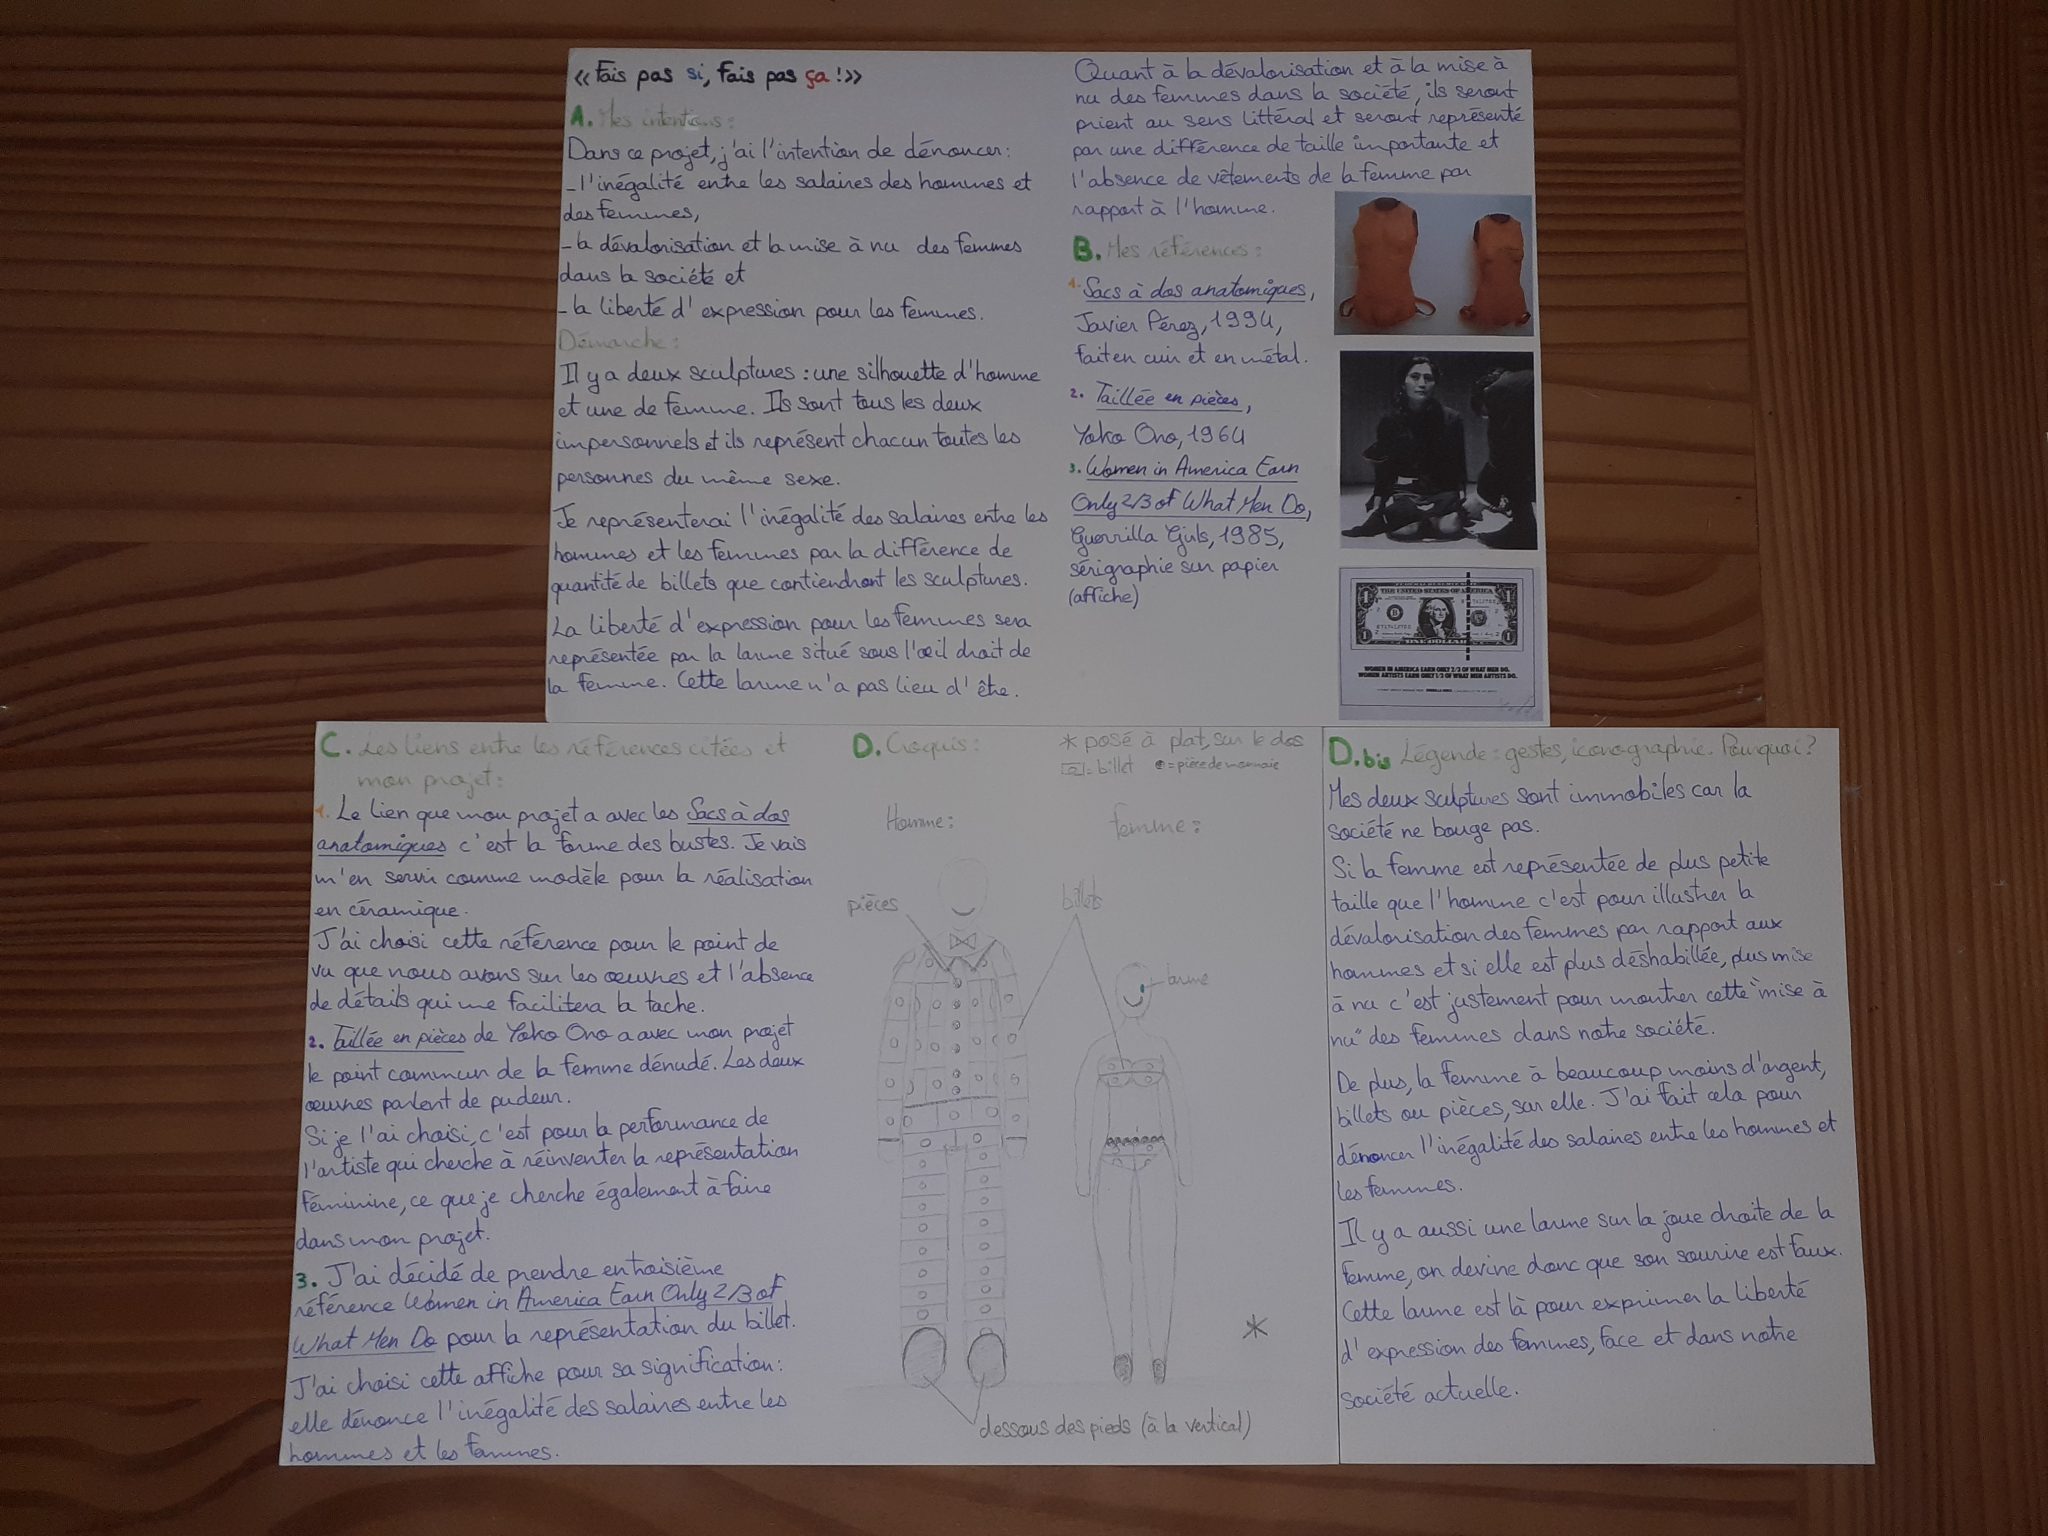 « Fais pas si, Fais pas ça ! »
A. Mes intentions :
Dans ce projet, j'ai l'intention de dénoncer :
- l'inégalité entre les salaires des hommes et
des femmes,
- la dévalorisation et la mise à nu des femmes
dans la société et
- la liberté d'expression pour les femmes.
Démarche :
Il y a deux sculptures : une silhouette d'homme
et une de femme. Ils sont tous les deux
impersonnels et ils représent chacun toutes les
personnes du même sexe.
Je représenterai l'inégalité des salaires entre les
hommes et les femmes par la différence de
quantité de billets que contiendront les sculptures.
La liberté d'expression pour les femmes sera
représentée par la larme situé sous l'œil droit de
la femme. Cette larme n'a pas lieu d'être.
Quant à la dévalorisation et à la mise à
nu des femmes dans la société, ils seront
prient au sens littéral et seront représenté
par une différence de taille importante et
l'absence de vêtements de la femme par
rapport à l'homme.
B. Mes références :
1. Sacs à dos anatomiques,
Javier Pérez, 1994,
fait en cuir et en métal.
2. Taillée en pièces,
Yoko Ono, 1964
3. Women in America Earn
Only 2/3 of What Men Do,
Guerrilla Girls, 1985,
sérigraphie sur papier
(affiche)
THE UNITED STATES OF AMERICA
ONE DOLLAR
WOMEN IN AMERICA EARN ONLY 2/3 OF WHAT MEN DO.
WOMEN ARTISTS EARN ONLY 1/3 OF WHAT MEN ARTISTS DO.
C. Les liens entre les références citées et
mon projet :
1. Le lien que mon projet a avec les Sacs à dos
anatomiques c'est la forme des bustes. Je vais
m'en servir comme modèle pour la réalisation
en céramique.
J'ai choisi cette référence pour le point de
vu que nous avons sur les œuvres et l'absence
de détails qui me facilitera la tache.
2. Taillée en pièces de Yoko Ono a avec mon projet
le point commun de la femme dénudé. Les deux
œuvres parlent de pudeur.
Si je l'ai choisi, c'est pour la performance de
l'artiste qui cherche à réinventer la représentation
féminine, ce que je cherche également à faire
dans mon projet.
3. J'ai décidé de prendre en troisième
référence Women in America Earn Only 2/3 of
What Men Do pour la représentation du billet.
J'ai choisi cette affiche pour sa signification :
elle dénonce l'inégalité des salaires entre les
hommes et les femmes.
D. Croquis :
* posé à plat, sur le dos
= billet = pièce de monnaie
Homme :
femme :
pièces
billets
larme
*
dessous des pieds (à la vertical)
D.bis Légende : gestes, iconographie. Pourquoi ?
Mes deux sculptures sont immobiles car la
société ne bouge pas.
Si la femme est représentée de plus petite
taille que l'homme c'est pour illustrer la
dévalorisation des femmes par rapport aux
hommes et si elle est plus déshabillée, plus mise
à nu c'est justement pour montrer cette "mise à
nu" des femmes dans notre société.
De plus, la femme à beaucoup moins d'argent,
billets ou pièces, sur elle. J'ai fait cela pour
dénoncer l'inégalité des salaires entre les hommes et
les femmes.
Il y a aussi une larme sur la joue droite de la
femme, on devine donc que son sourire est faux.
Cette larme est là pour exprimer la liberté
d'expression des femmes, face et dans notre
société actuelle.